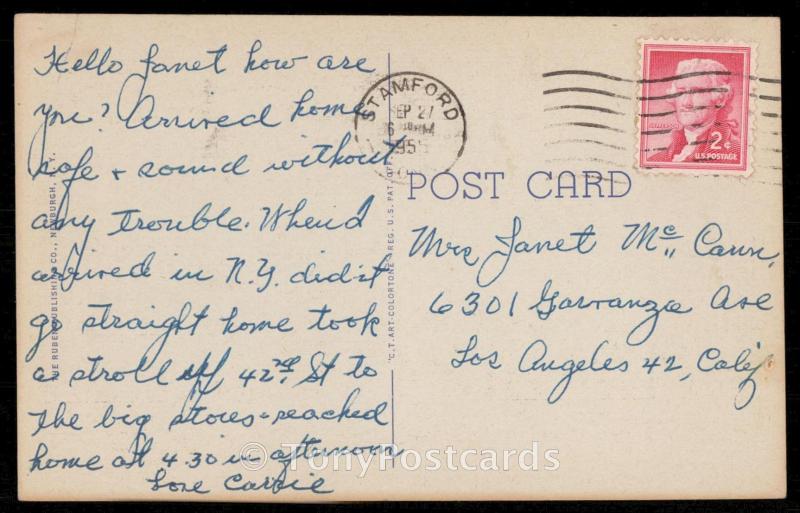 Hello Janet how are
you? Arrived home
safe + sound without
any trouble. When I
arrived in N.Y. didn't
go straight home took
a stroll up 42nd St to
the big stores - reached
home at 4.30 in afternoon
Love Carrie
STAMFORD
SEP 27
6 PM
195
2¢
U.S. POSTAGE
POST CARD
Mrs Janet Mc Cann,
6301 Garvanza Ave
Los Angeles 42, Calif
RUBEN PUBLISHING CO., NEWBURGH, N.Y.
"C.T. ART-COLORTONE" REG. U.S. PAT. OF
© TonyPostcards